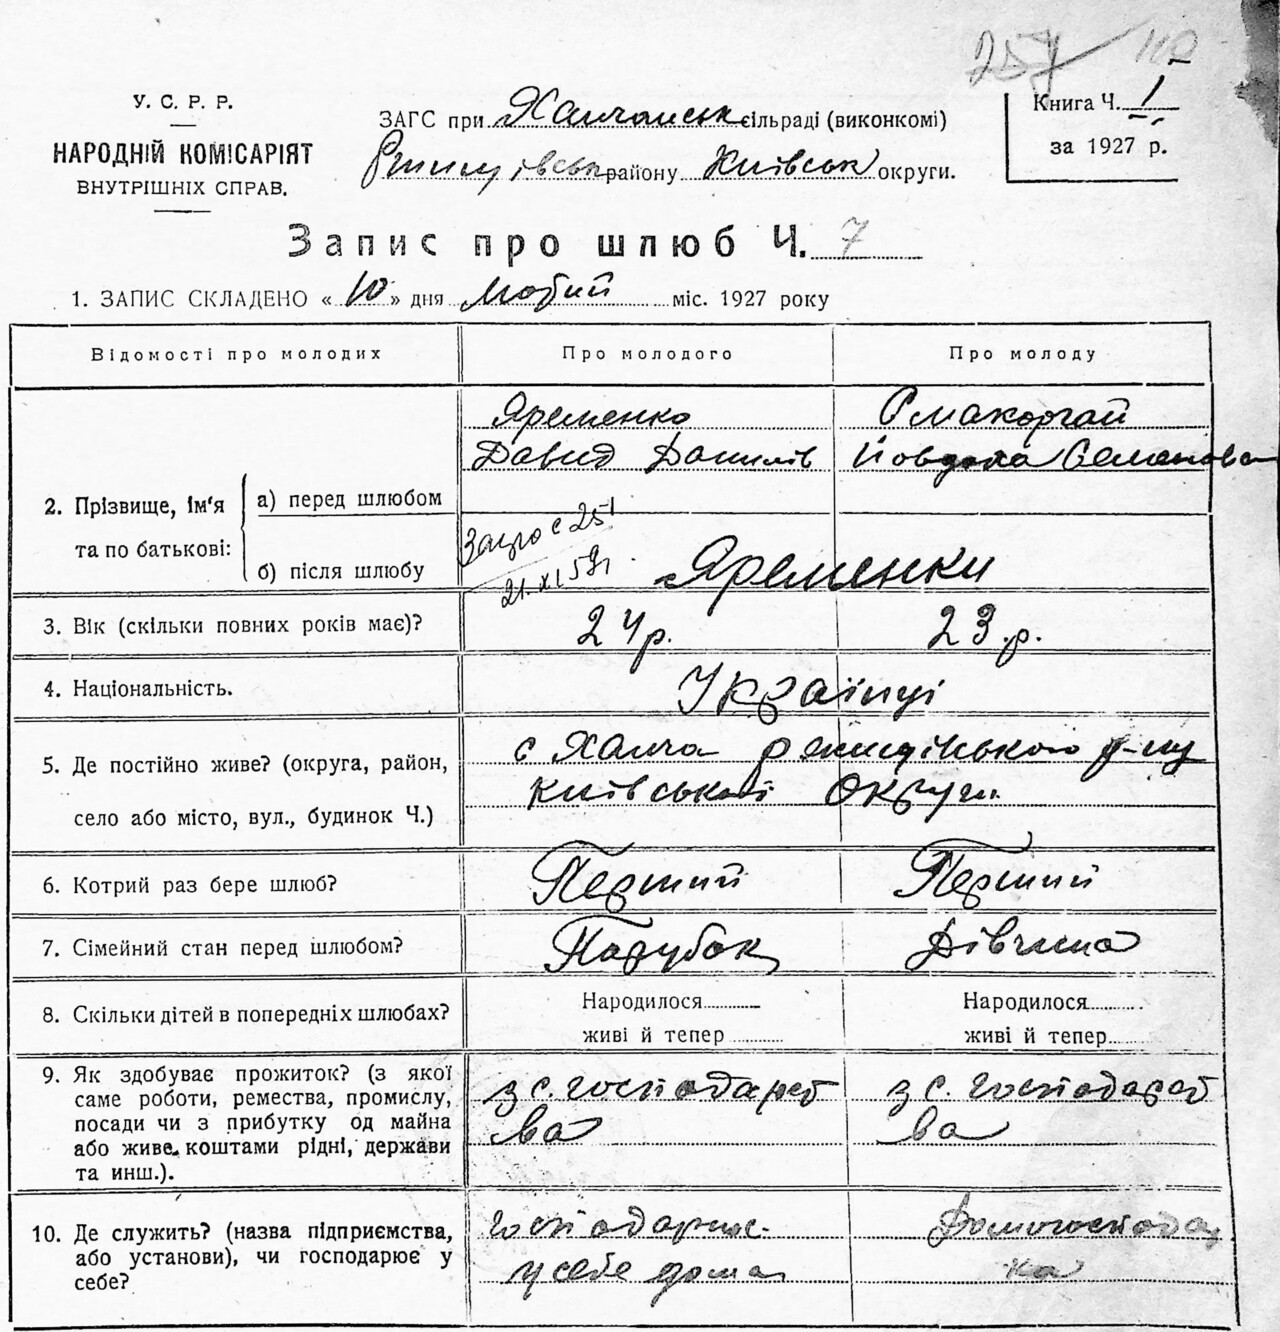 257
У. С. Р. Р.
НАРОДНІЙ КОМІСАРІЯТ
ВНУТРІШНІХ СПРАВ.
ЗАГС при Халчанськ сільраді (виконкомі)
району Київськ округи.
Книга Ч. 1
за 1927 р.
Запис про шлюб Ч. 7
1. ЗАПИС СКЛАДЕНО « 10 » дня Лютий міс. 1927 року
Відомості про молодих
Про молодого
Про молоду
2. Прізвище, ім'я та по батькові:
а) перед шлюбом
Яременко
Давид Данилів
Смакоргай
Йовдоха Семенова
б) після шлюбу
Яременки
21.XI 59р.
3. Вік (скільки повних років має)?
24р.
23.р.
4. Національність.
Українці
5. Де постійно живе? (округа, район,
село або місто, вул., будинок Ч.)
с Халча р-ну
Київської Округи
6. Котрий раз бере шлюб?
Перший
Перший
7. Сімейний стан перед шлюбом?
Парубок
Дівчина
8. Скільки дітей в попередніх шлюбах?
Народилося
живі й тепер
Народилося
живі й тепер
9. Як здобуває прожиток? (з якої
саме роботи, ремества, промислу,
посади чи з прибутку од майна
або живе коштами рідні, держави
та инш.).
з с. господарст
ва
з с. господарст
ва
10. Де служить? (назва підприємства,
або установи), чи господарює у
себе?
господарює
у себе дома
Домогоспода
ка